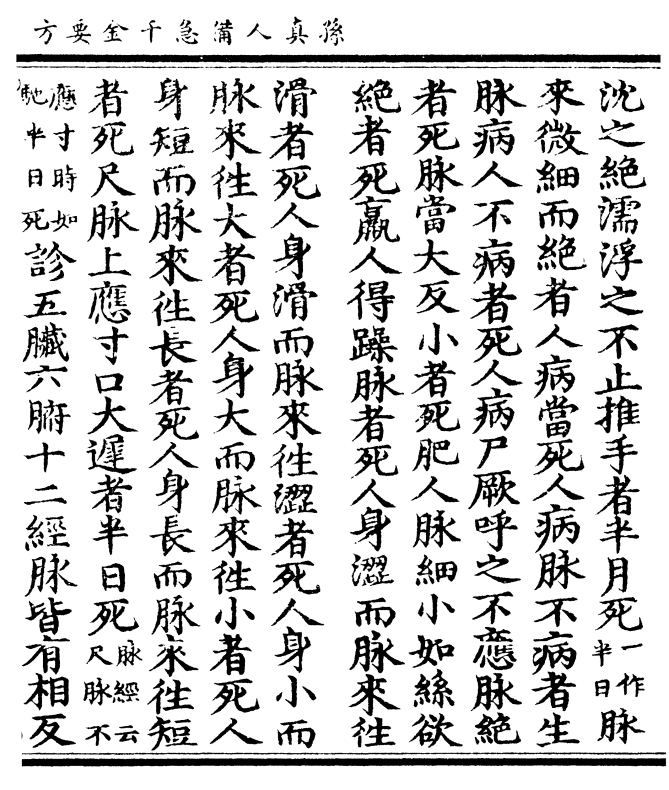 孫真人備急千金要方
沈之絶濡浮之不止推手者半月死一作半日脉
來微細而絶者人病當死人病脉不病者生
脉病人不病者死人病尸厥呼之不應脉絶
者死脉當大反小者死肥人脉細小如絲欲
絶者死羸人得躁脉者死人身澀而脉來往
滑者死人身滑而脉來往澀者死人身小而
脉來往大者死人身大而脉來往小者死人
身短而脉來往長者死人身長而脉來往短
者死尺脉上應寸口大遲者半日死脉經云尺脉不
應寸時如馳半日死診五臟六腑十二經脉皆有相反